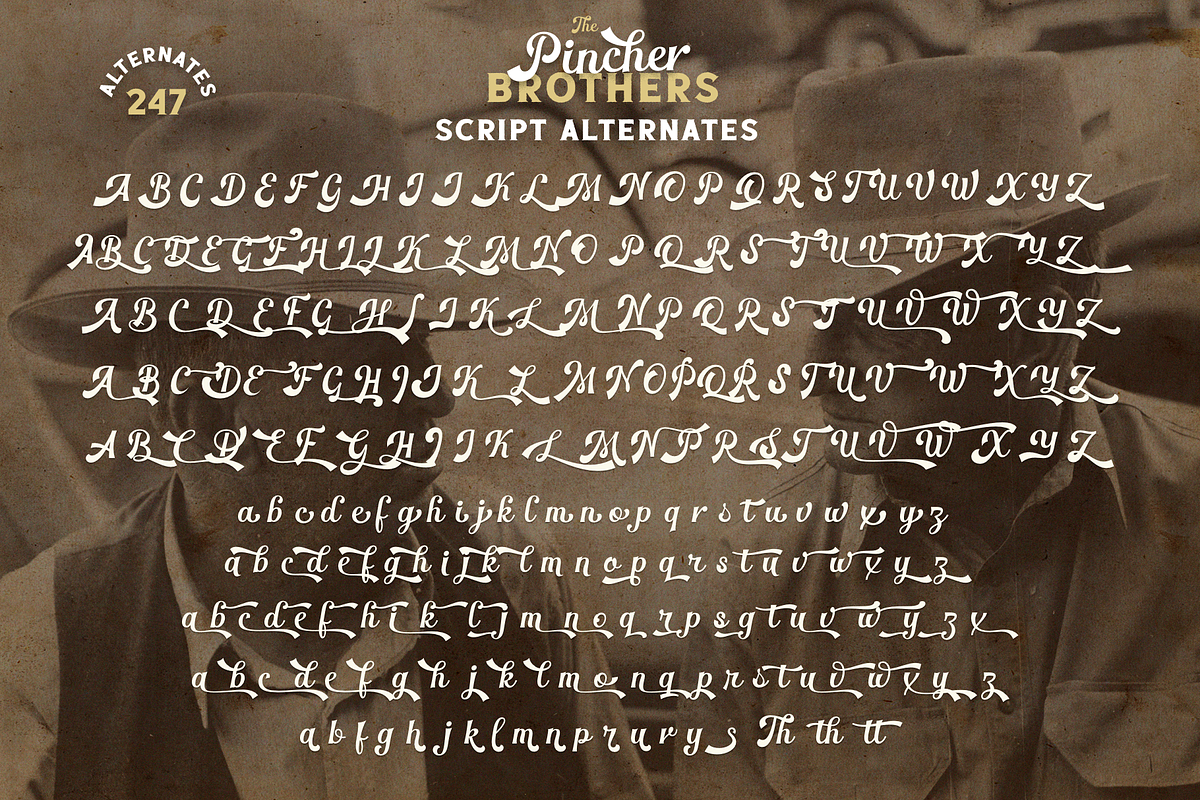 ALTERNATES
247
The
Pincher
BROTHERS
SCRIPT ALTERNATES
A B C D E F G H I J K L M N O P Q R S T U V W X Y Z
A B C D E G F H I J K L M N O P Q R S T U V W X Y Z
A B C D E F G H J I K L M N P Q R S T U V W X Y Z
A B C D E F G H I J K L M N O P Q R S T U V W X Y Z
A B C D E F G H J I K L M N P R S T U V W X Y Z
a b c d e f g h i j k l m n o p q r s t u v w x y z
a b c d e f g h i j k l m n o p q r s t u v w x y z
a b c d e f h i k l j m n o q r p s g t u v w y z x
a b c d e f g h j k l m o n q p r s t u v w x y z
a b f g h j k l m n p r u r y s Th th tt